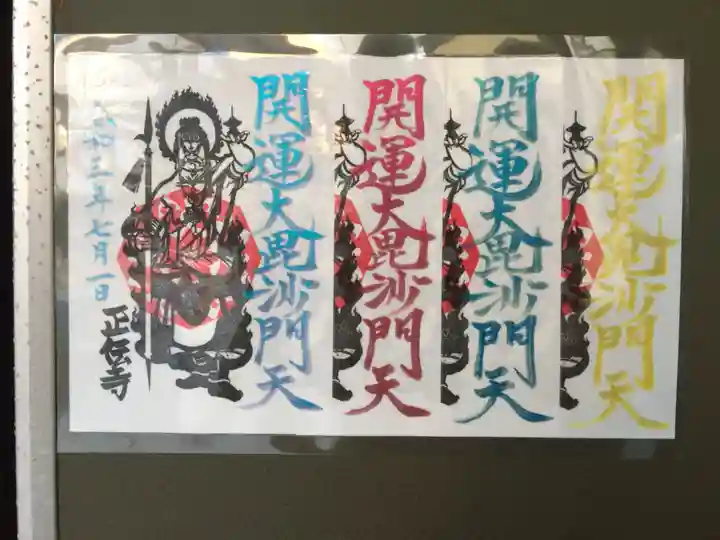 開運大毘沙門天
開運大毘沙門天
開運大毘沙門天
開運大毘沙門天
令和三年七月一日
正伝寺